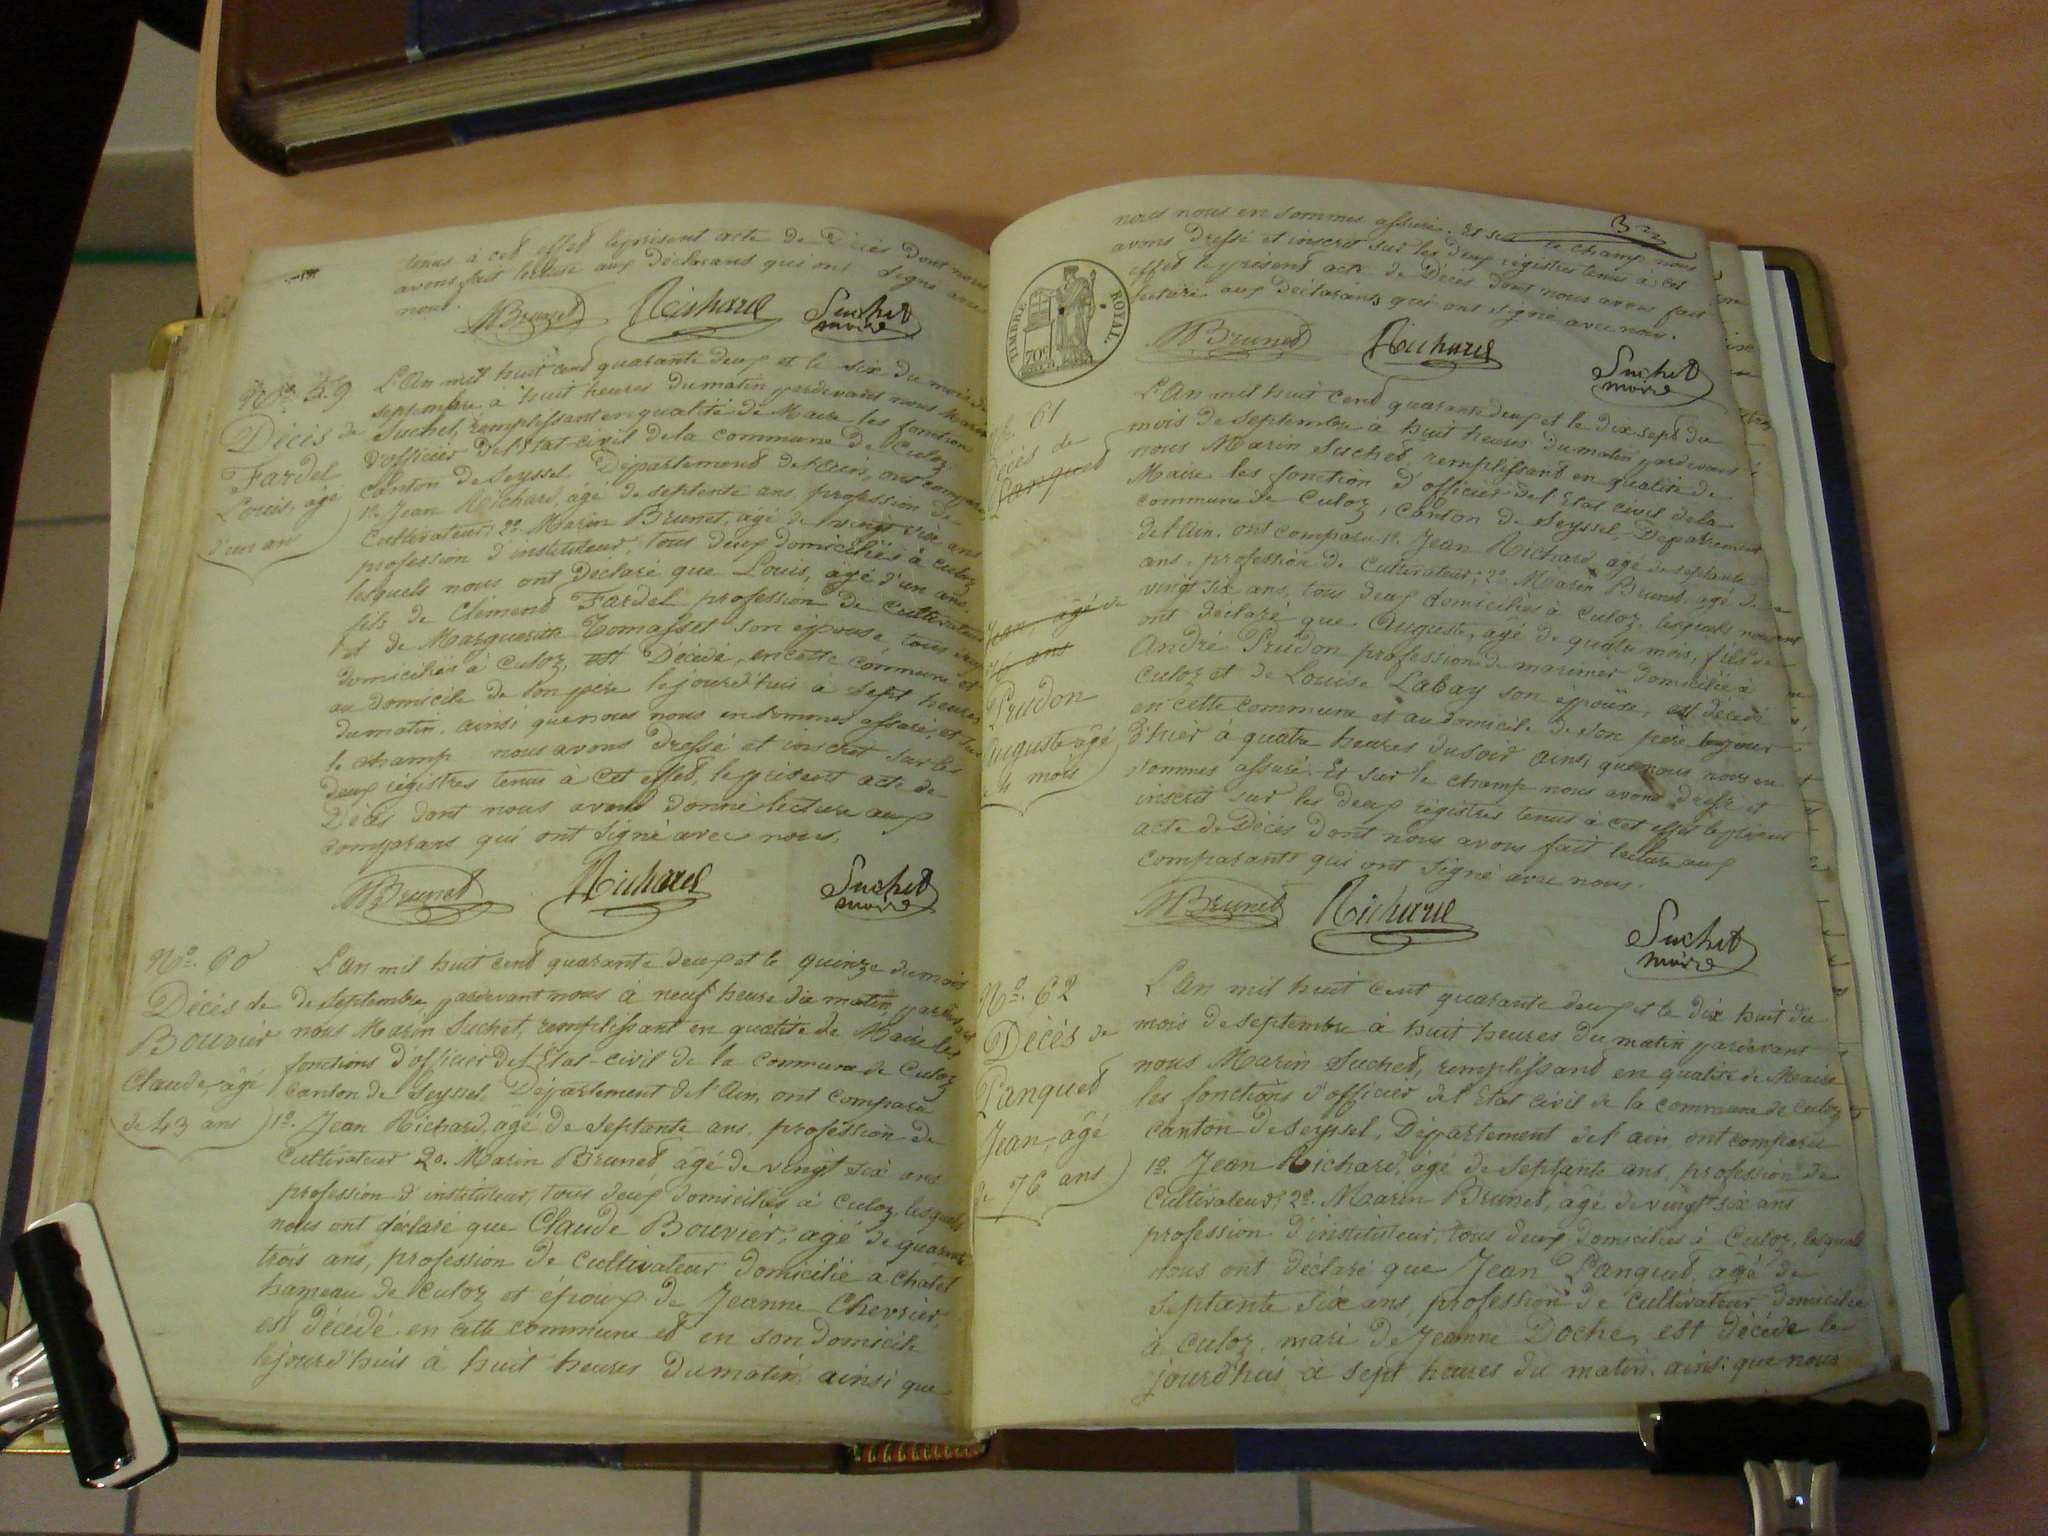 tenus à cet effet le présent acte de Décès dont nous
avons fait lecture aux déclarans qui ont signé avec
nous.
MBrunet Richard Suchet
maire
N.o 59
Décès de
Fardel
Louis, âgé
d'un an
L'An mil huit cent quarante deux et le six du mois de
septembre à huit heures du matin pardevant nous Marin
Suchet, remplissant en qualité de Maire les fonctions
d'officier de l'Etat-civil de la commune de Culoz
canton de Seyssel Département de l'Ain, ont comparu
1.o Jean Richard, âgé de septente ans, profession de
Cultivateur, 2.o Marin Brunet, âgé de vingt six ans
profession d'instituteur, tous deux domiciliés à Culoz
lesquels nous ont déclaré que Louis, âgé d'un an,
fils de Clément Fardel profession de Cultivateur
et de Marguerite Tomasset son épouse, tous deux
domiciliés à Culoz, est décédé, en cette commune et
au domicile de son père le jourd'hui à sept heures
du matin, ainsi que nous nous en sommes assuré, et sur
le champ nous avons dressé et inscrit sur les
deux régistres tenus à cet effet, le présent acte de
Décès dont nous avons donné lecture aux
comparans qui ont signé avec nous.
MBrunet Richard Suchet
maire
N.o 60
Décès de
Bouvier
Claude, âgé
de 43 ans
L'An mil huit cent quarante deux et le quinze du mois
de septembre, pardevant nous à neuf heure du matin, pardevant
nous Marin Suchet, remplissant en qualité de Maire les
fonctions d'officier de l'Etat-civil de la commune de Culoz
canton de Seyssel Département de l'Ain, ont comparu
1.o Jean Richard, âgé de septante ans, profession de
cultivateur 2.o Marin Brunet âgé de vingt six ans
profession d'instituteur, tous deux domiciliés à Culoz, lesquels
nous ont déclaré que Claude Bouvier, âgé de quarante
trois ans, profession de cultivateur domicilié à Châtel
hameau de Culoz et époux de Jeanne Chevrier,
est décédé en cette commune et en son domicile
le jourd'huis à huit heures du matin, ainsi que
3
nous nous en sommes assuré. Et sur le champ nous
avons dressé et inscrit sur les deux régistres tenus à cet
effet le présent acte de Décès dont nous avons fait
lecture aux déclarants qui ont signé avec nous.
TIMBRE ROYAL
70c
MBrunet Richard Suchet
maire
N.o 61
Décès de
Panqued
Jean, âgé de
76 ans
Prudon
Auguste âgé
de 4 mois
L'An mil huit cent quarante deux et le dix sept du
mois de septembre à huit heures du matin pardevant
nous Marin Suchet remplissant en qualité de
Maire les fonction d'officier de l'Etat civil de la
commune de Culoz, Canton de Seyssel, Département
de l'Ain, ont comparu 1.o Jean Richard, âgé de septante
ans, profession de Cultivateur; 2.o Marin Brunet, âgé de
vingt six ans, tous deux domiciliés à Culoz, lesquels nous
ont déclaré que Auguste, âgé de quatre mois, fils de
André Prudon profession de marinier domicilié à
Culoz et de Louise Labay son épouse, est décédé
en cette commune et au domicile de son père le jour
d'hier à quatre heures du soir ainsi que nous nous en
sommes assuré. Et sur le champ nous avons dressé et
inscrit sur les deux régistres tenus à cet effet le présent
acte de Décès dont nous avons fait lecture aux
comparants qui ont signé avec nous.
MBrunet Richard Suchet
maire
N.o 62
Décès de
Panqued
Jean, âgé
de 76 ans
L'An mil huit cent quarante deux et le dix huit du
mois de septembre à huit heures du matin pardevant
nous Marin Suchet, remplissant en qualité de Maire
les fonctions d'officier de l'Etat civil de la commune de Culoz
canton de Seyssel, Département de l'ain, ont comparu
1.o Jean Richard, âgé de septante ans, profession de
Cultivateur; 2.o Marin Brunet, âgé de vingt six ans
profession d'instituteur, tous deux domiciliés à Culoz, lesquels
nous ont déclaré que Jean Panqued, âgé de
septante six ans, profession de cultivateur domicilié
à Culoz, mari de Jeanne Doche, est décédé le
jourd'huis à sept heures du matin, ainsi que nous